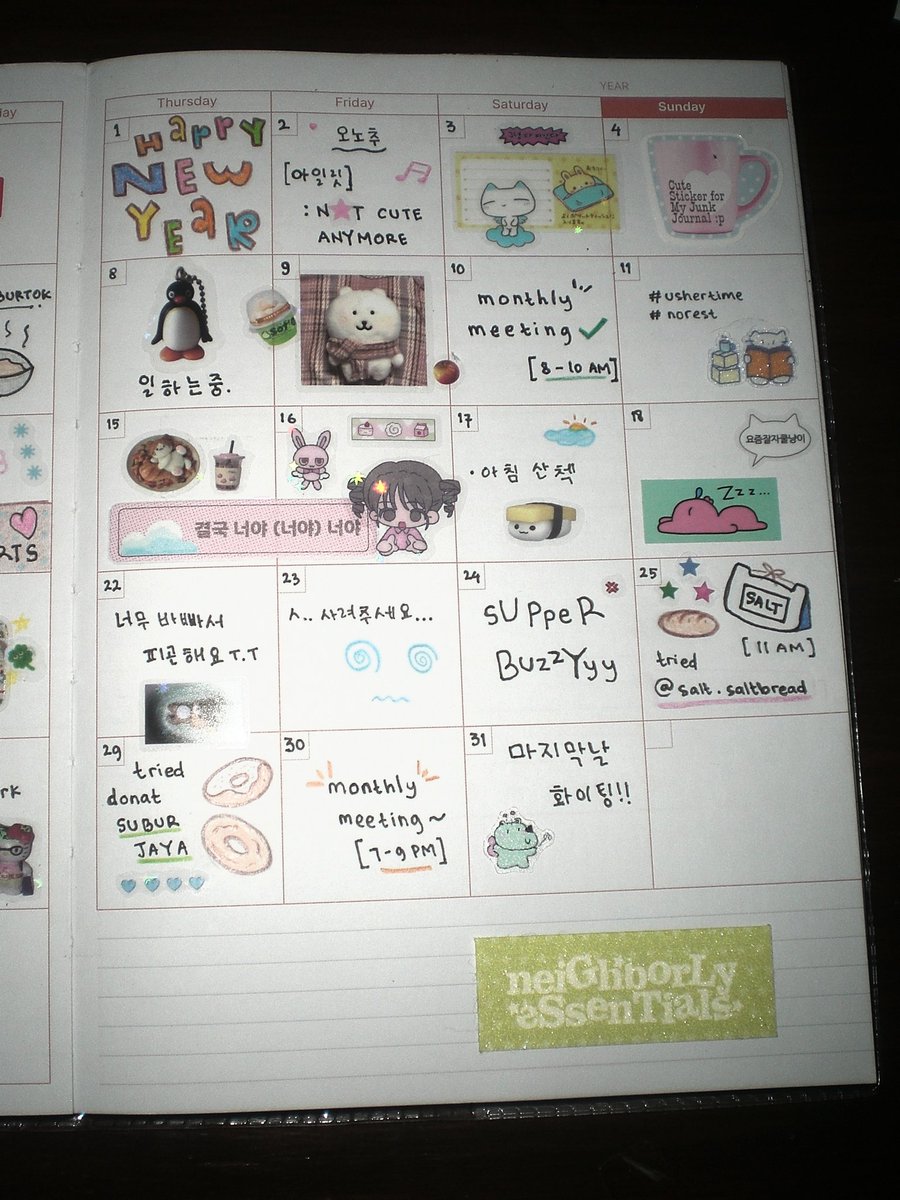 YEAR
Thursday
Friday
Saturday
Sunday
1
HAPPY
NEW
YEAR
2
오노추
[아일릿]
: N★T CUTE
ANYMORE
3
4
Cute
Sticker for
My Junk
Journal :p
BURTOK
8
일하는중.
9
10
monthly
meeting ✓
[8-10 AM]
11
# ushertime
# norest
15
16
결국 너야 (너야) 너야
17
· 아침 산책
18
요즘잘자쿨냥이
Zzz...
22
너무 바빠서
피곤해요 T.T
23
ㅅ.. 사려주세요...
24
SUPPER
BUZZYyy
25
SALT
[11 AM]
tried
@salt.saltbread
29
tried
donat
SUBUR
JAYA
30
monthly
meeting~
[7-9 PM]
31
마지막날
화이팅!!
neighborly
essentials